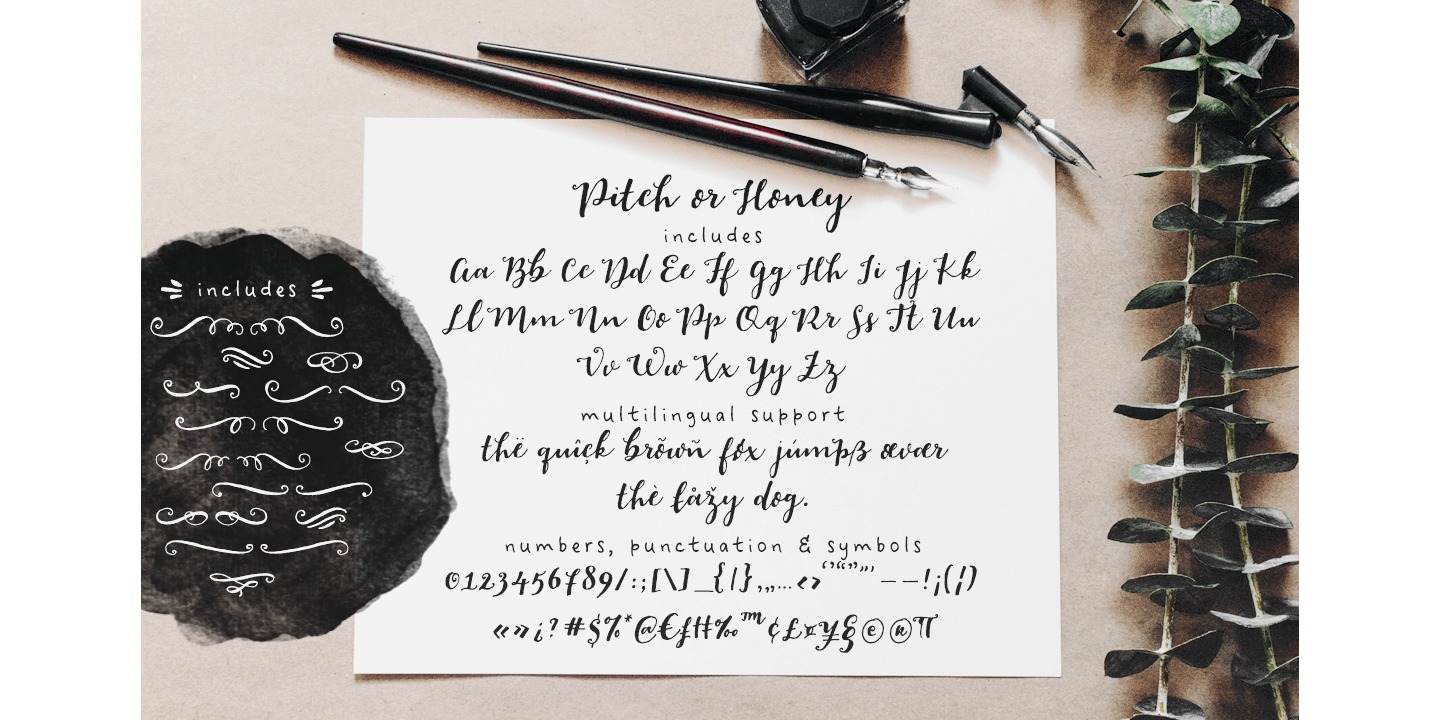 Pitch or Honey
includes
Aa Bb Cc Dd Ee Ff Gg Hh Ii Jj Kk
Ll Mm Nn Oo Pp Qq Rr Ss Tt Uu
Vv Ww Xx Yy Zz
multilingual support
thë quîçk brõwñ fóx júmþß œvær
thè łåžy dog.
numbers, punctuation & symbols
0123456789/:;[\]_{|}‚„…‹›‘’“”"'––!¡(¦)
«»¿?#$%*@€ƒ#‰™¢£¤¥§©®¶
includes